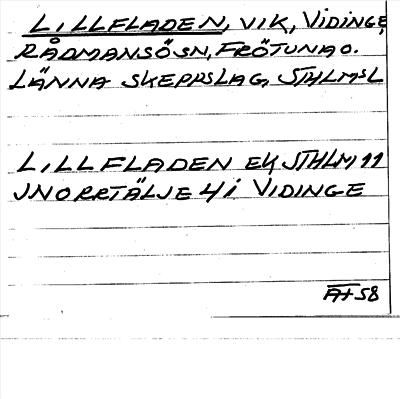 LILLFLADEN, VIK, VIDINGE,
RÅDMANSÖSN, FRÖTUNA O.
LÄNNA SKEPPSLAG, STHLMSL
LILLFLADEN EK STHLM 11
JNORRTÄLJE 4 i VIDINGE
A+58